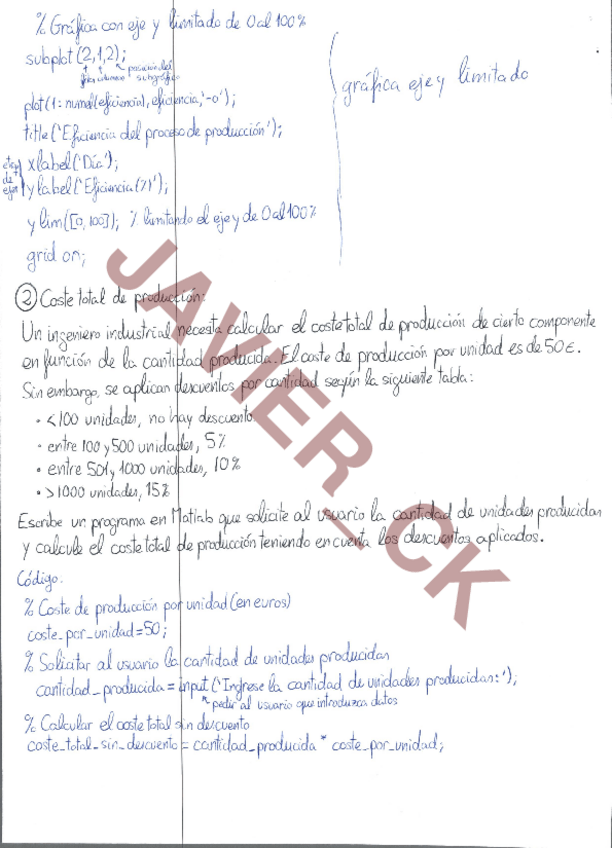 % Gráfica con eje y limitado de 0 al 100%
subplot (2,1,2);
fila columna posición del subgráfico
plot(1:numel(eficiencia),eficiencia,'-o');
title('Eficiencia del proceso de producción');
xlabel('Día');
ylabel('Eficiencia (%)');
ylim([0,100]); % limitando el eje y de 0 al 100%
grid on;
gráfica eje y limitado
② Coste total de producción:
Un ingeniero industrial necesita calcular el coste total de producción de cierto componente
en función de la cantidad producida. El coste de producción por unidad es de 50€.
Sin embargo, se aplican descuentos por cantidad según la siguiente tabla:
• <100 unidades, no hay descuento
• entre 100 y 500 unidades, 5%
• entre 501 y 1000 unidades, 10%
• >1000 unidades, 15%
Escribe un programa en Matlab que solicite al usuario la cantidad de unidades producidas
y calcule el coste total de producción teniendo en cuenta los descuentos aplicados.
Código.
% Coste de producción por unidad (en euros)
coste_por_unidad=50;
% Solicitar al usuario la cantidad de unidades producidas
cantidad_producida = input('Ingrese la cantidad de unidades producidas:');
pedir al usuario que introduzca datos
% Calcular el coste total sin descuento
coste_total_sin_descuento = cantidad_producida * coste_por_unidad;
JAVIER_CK